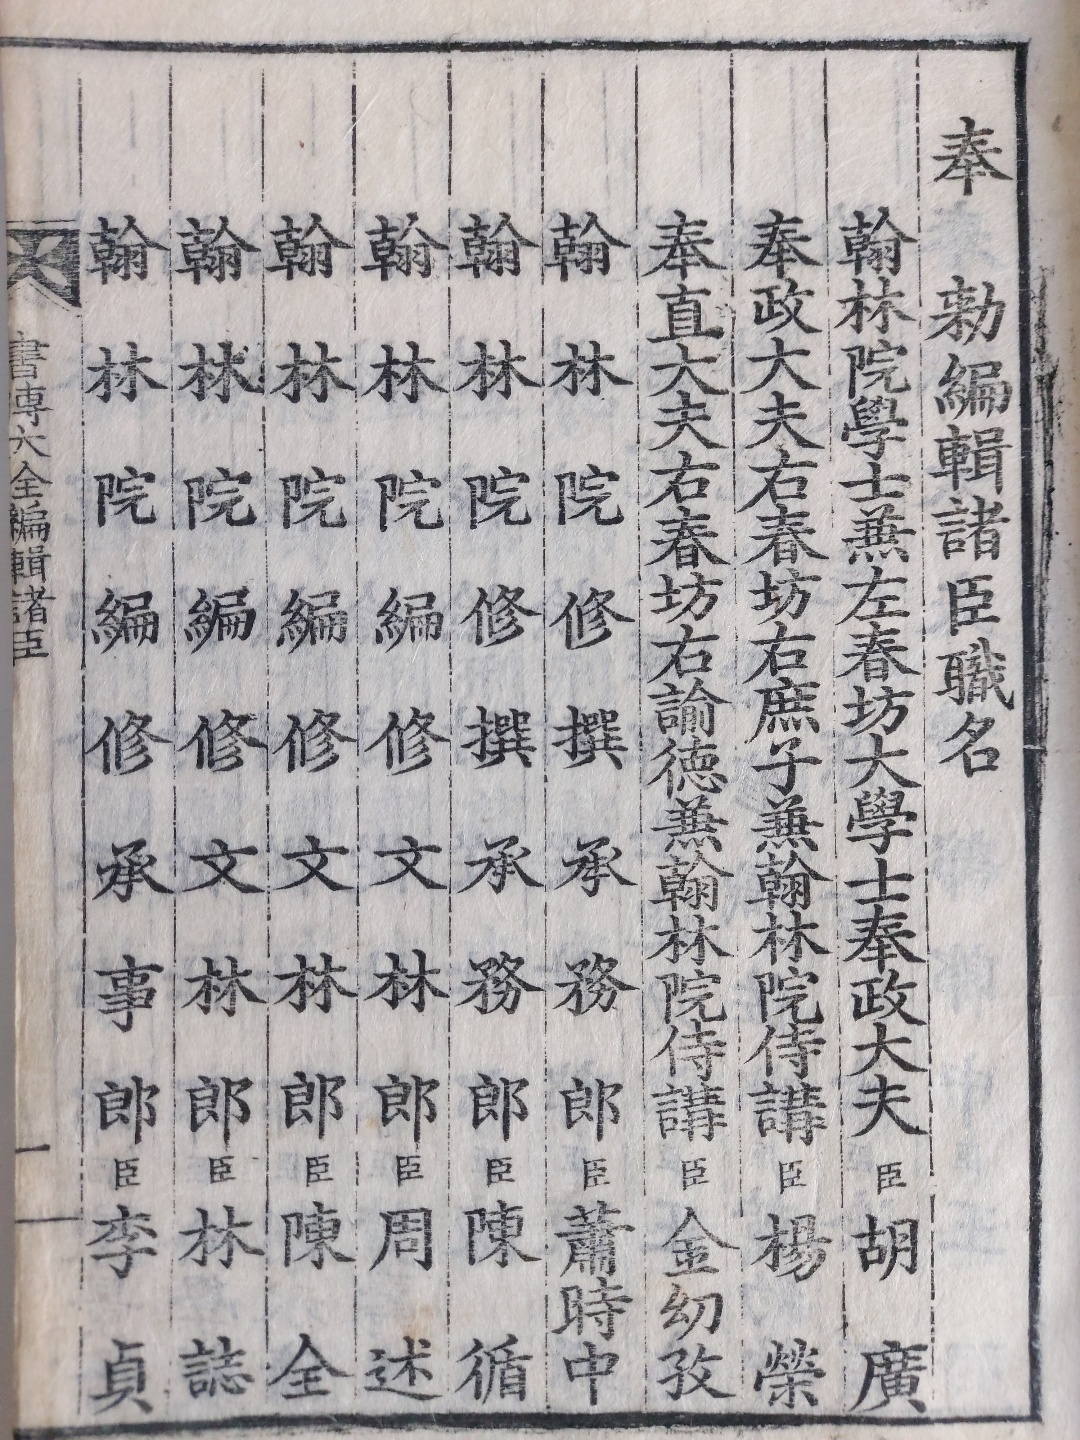 奉　勑編輯諸臣職名
翰林院學士蕪左春坊大學士奉政大夫臣胡廣
奉政大夫右春坊右庶子蕪翰林院侍講臣楊榮
奉直大夫右春坊右諭德蕪翰林院侍講臣金幼孜
翰林院修撰承務郎臣蕭時中
翰林院修撰承務郎臣陳循
翰林院編修文林郎臣周述
翰林院編修文林郎臣陳全
翰林院編修文林郎臣林誌
翰林院編修承事郎臣李貞
書傳大全編輯諸臣　一